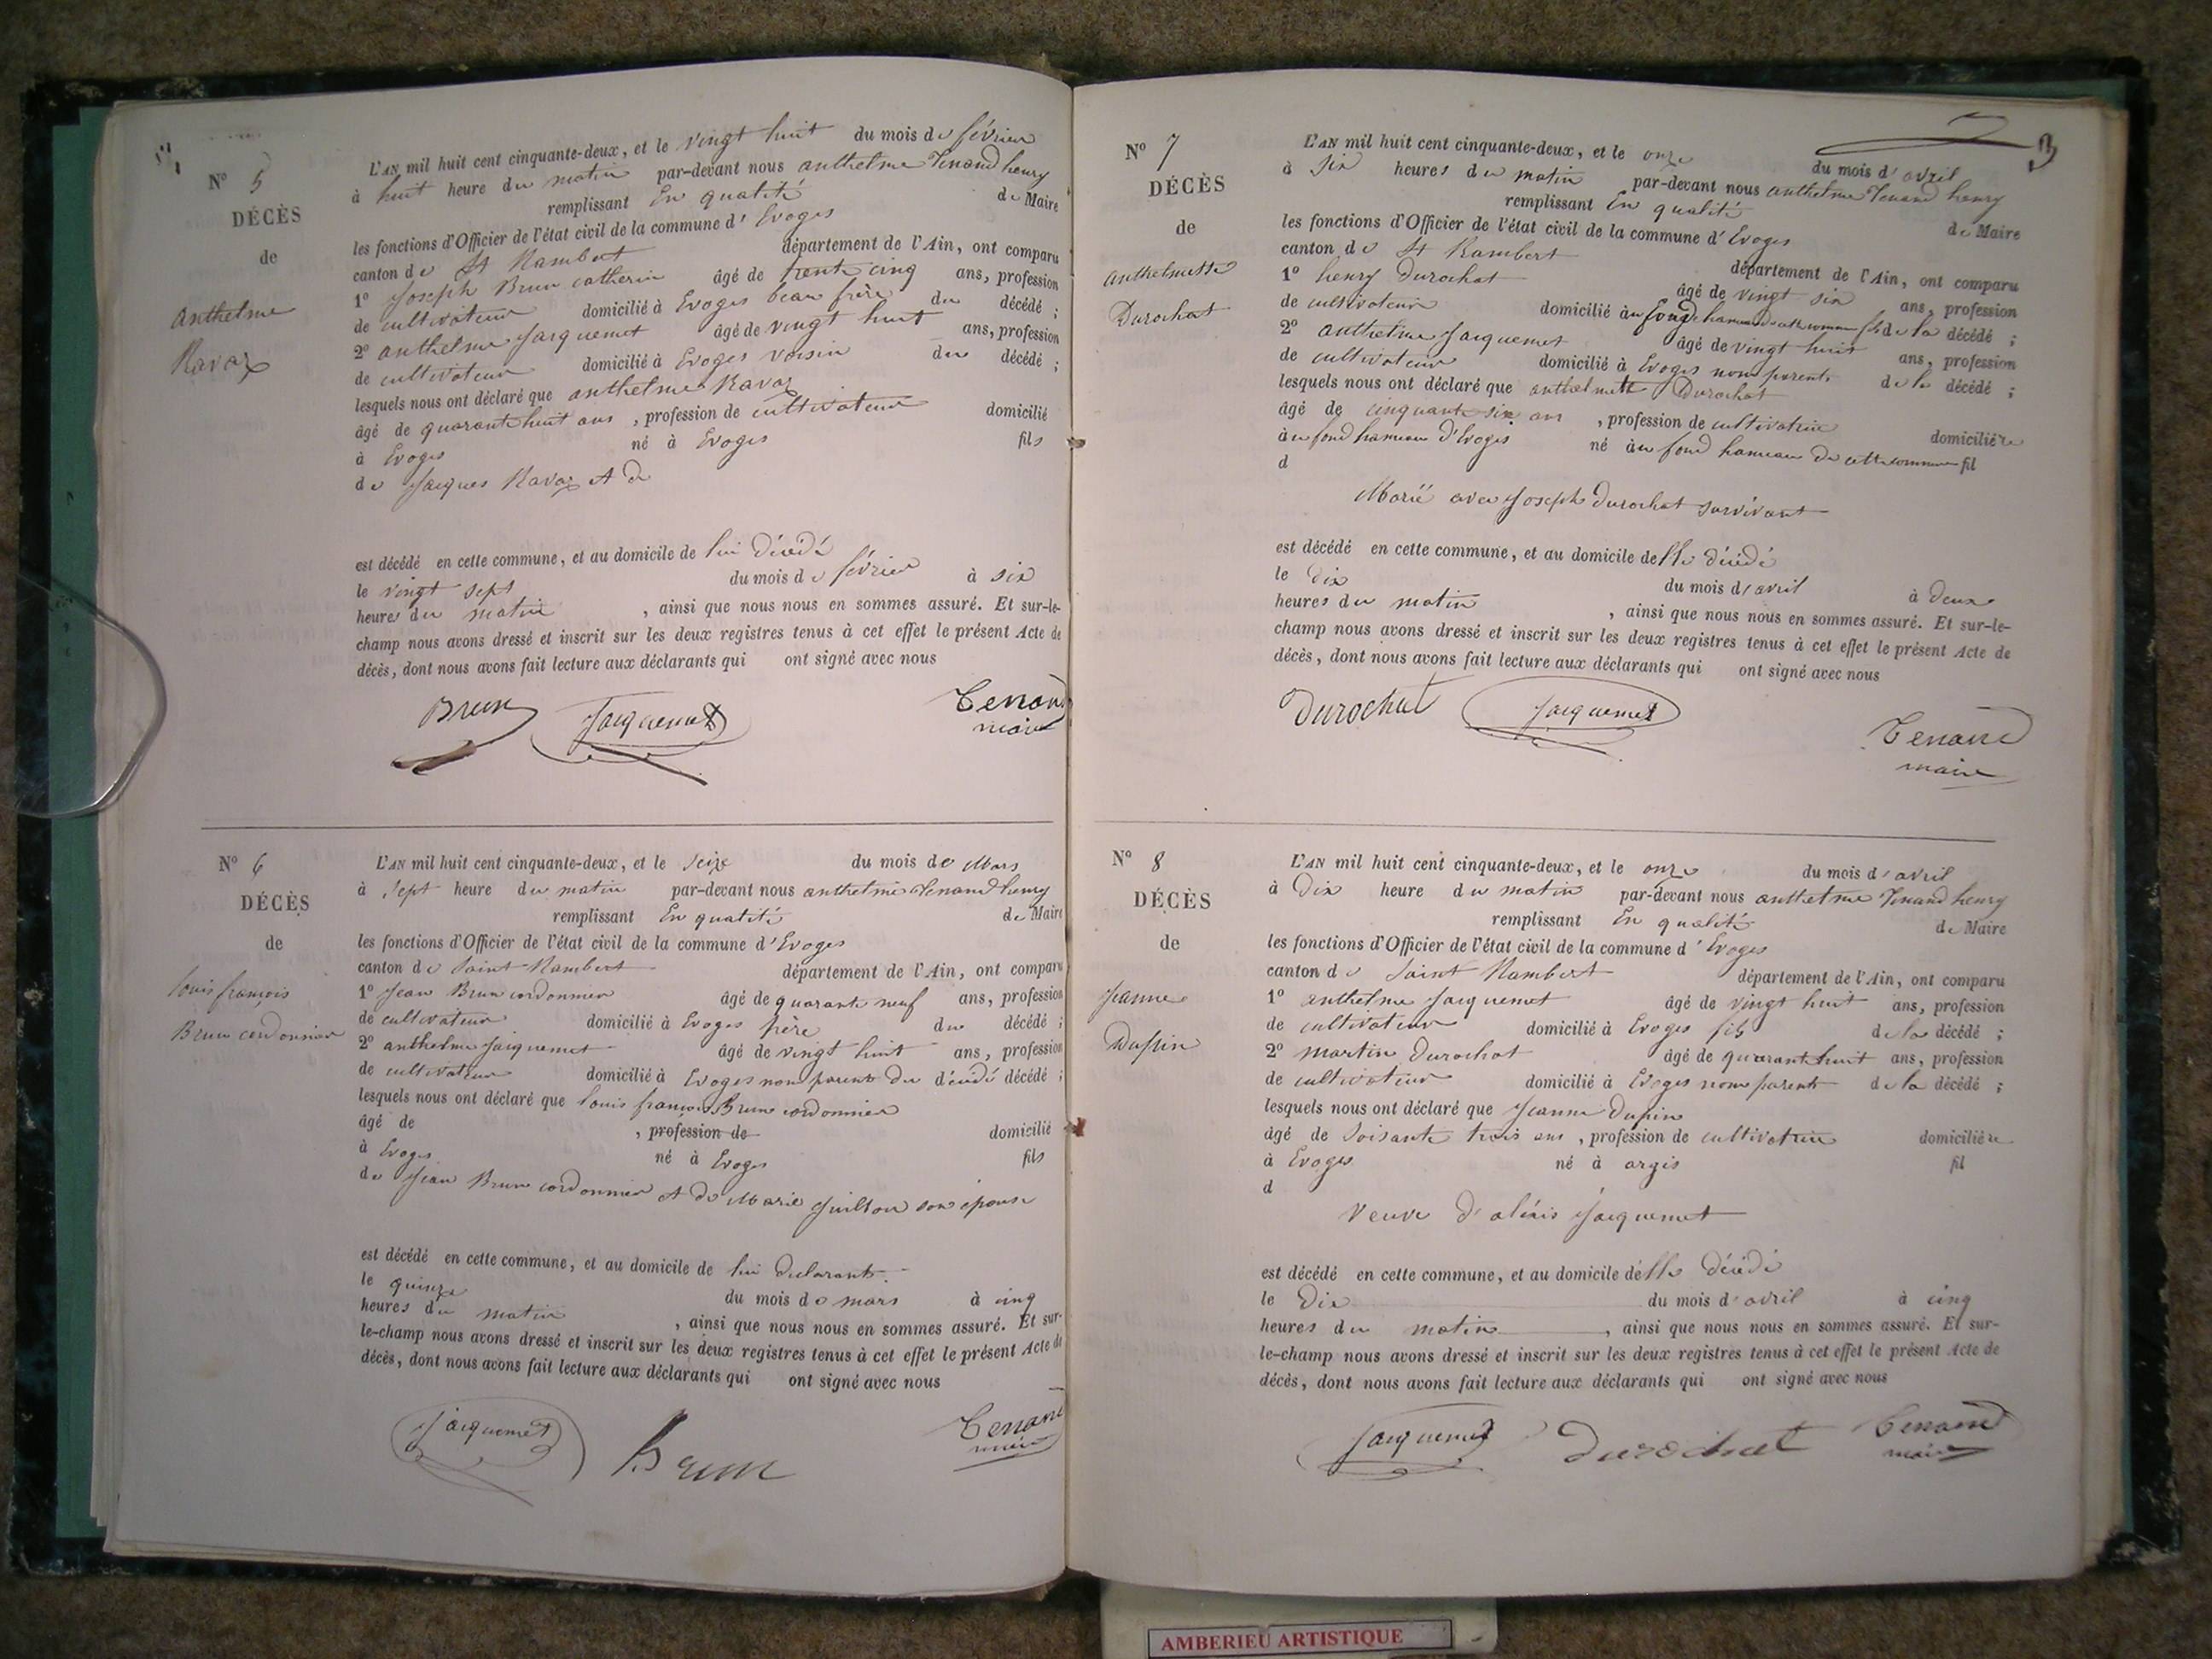 Nº 5
DÉCÈS
de
anthelme
Ravaz
L'AN mil huit cent cinquante-deux, et le vingt huit du mois de février
à huit heure du matin par-devant nous anthelme Tenand henry
remplissant En qualité de Maire
les fonctions d'Officier de l'état civil de la commune d'Evoges
canton de St Rambert département de l'Ain, ont comparu
1º Joseph Brun catherin âgé de trente cinq ans, profession
de cultivateur domicilié à Evoges beau frère du décédé ;
2º anthelme Jacquemet âgé de vingt huit ans, profession
de cultivateur domicilié à Evoges voisin du décédé ;
lesquels nous ont déclaré que anthelme Ravaz
âgé de quarante huit ans , profession de cultivateur domicilié
à Evoges né à Evoges fils
de Jacques Ravaz et de
est décédé en cette commune, et au domicile de lui décédé
le vingt sept du mois de février à six
heures du matin , ainsi que nous nous en sommes assuré. Et sur-le-
champ nous avons dressé et inscrit sur les deux registres tenus à cet effet le présent Acte de
décès, dont nous avons fait lecture aux déclarants qui ont signé avec nous
Brun Jacquemet Tenand
maire
Nº 6
DÉCÈS
de
louis françois
Brun cordonnier
L'AN mil huit cent cinquante-deux, et le seize du mois de Mars
à sept heure du matin par-devant nous anthelme Tenand henry
remplissant En qualité de Maire
les fonctions d'Officier de l'état civil de la commune d'Evoges
canton de Saint Rambert département de l'Ain, ont comparu
1º Jean Brun cordonnier âgé de quarante neuf ans, profession
de cultivateur domicilié à Evoges père du décédé ;
2º anthelme Jacquemet âgé de vingt huit ans, profession
de cultivateur domicilié à Evoges non parent du décédé décédé ;
lesquels nous ont déclaré que louis françois Brun cordonnier
âgé de , profession de domicilié
à Evoges né à Evoges fils
de Jean Brun cordonnier et de Marie son épouse
est décédé en cette commune, et au domicile de lui declarant.
le quinze du mois de mars à cinq
heures du matin , ainsi que nous nous en sommes assuré. Et sur-
le-champ nous avons dressé et inscrit sur les deux registres tenus à cet effet le présent Acte de
décès, dont nous avons fait lecture aux déclarants qui ont signé avec nous
Jacquemet Brun Tenand
maire
3
Nº 7
DÉCÈS
de
anthelmette
Durochat
L'AN mil huit cent cinquante-deux, et le onze du mois d'avril
à six heures du matin par-devant nous anthelme Tenand henry
remplissant En qualité de Maire
les fonctions d'Officier de l'état civil de la commune d'Evoges
canton de St Rambert département de l'Ain, ont comparu
1º henry Durochat âgé de vingt six ans, profession
de cultivateur domicilié au fond hameau de cette commune fils de la décédé ;
2º anthelme Jacquemet âgé de vingt huit ans, profession
de cultivateur domicilié à Evoges non parent de la décédé ;
lesquels nous ont déclaré que anthelmette Durochat
âgé de cinquante six ans , profession de cultivatrice domiciliére
àu fond hameau d'Evoges né àu fond hameau de cette commune fil
d
Marié avec Joseph Durochat survivant
est décédé en cette commune, et au domicile de Elle décédé
le dix du mois d'avril à deux
heures du matin , ainsi que nous nous en sommes assuré. Et sur-le-
champ nous avons dressé et inscrit sur les deux registres tenus à cet effet le présent Acte de
décès, dont nous avons fait lecture aux déclarants qui ont signé avec nous
Durochat Jacquemet Tenand
maire
Nº 8
DÉCÈS
de
Jeanne
Dupin
L'AN mil huit cent cinquante-deux, et le onze du mois d'avril
à Dix heure du matin par-devant nous anthelme Tenand henry
remplissant En qualité de Maire
les fonctions d'Officier de l'état civil de la commune d'Evoges
canton de Saint Rambert département de l'Ain, ont comparu
1º anthelme Jacquemet âgé de vingt huit ans, profession
de cultivateur domicilié à Evoges fils de la décédé ;
2º martin Durochat âgé de quarante huit ans, profession
de cultivateur domicilié à Evoges non parent de la décédé ;
lesquels nous ont déclaré que Jeanne Dupin
âgé de soisante trois ans , profession de cultivatrice domiciliére
à Evoges né à argis fil
d
veuve d'aléxis Jacquemet
est décédé en cette commune, et au domicile de Elle décédé
le Dix du mois d'avril à cinq
heures du matin , ainsi que nous nous en sommes assuré. Et sur-
le-champ nous avons dressé et inscrit sur les deux registres tenus à cet effet le présent Acte de
décès, dont nous avons fait lecture aux déclarants qui ont signé avec nous
Jacquemet Durochat Tenand
maire
AMBERIEU ARTISTIQUE